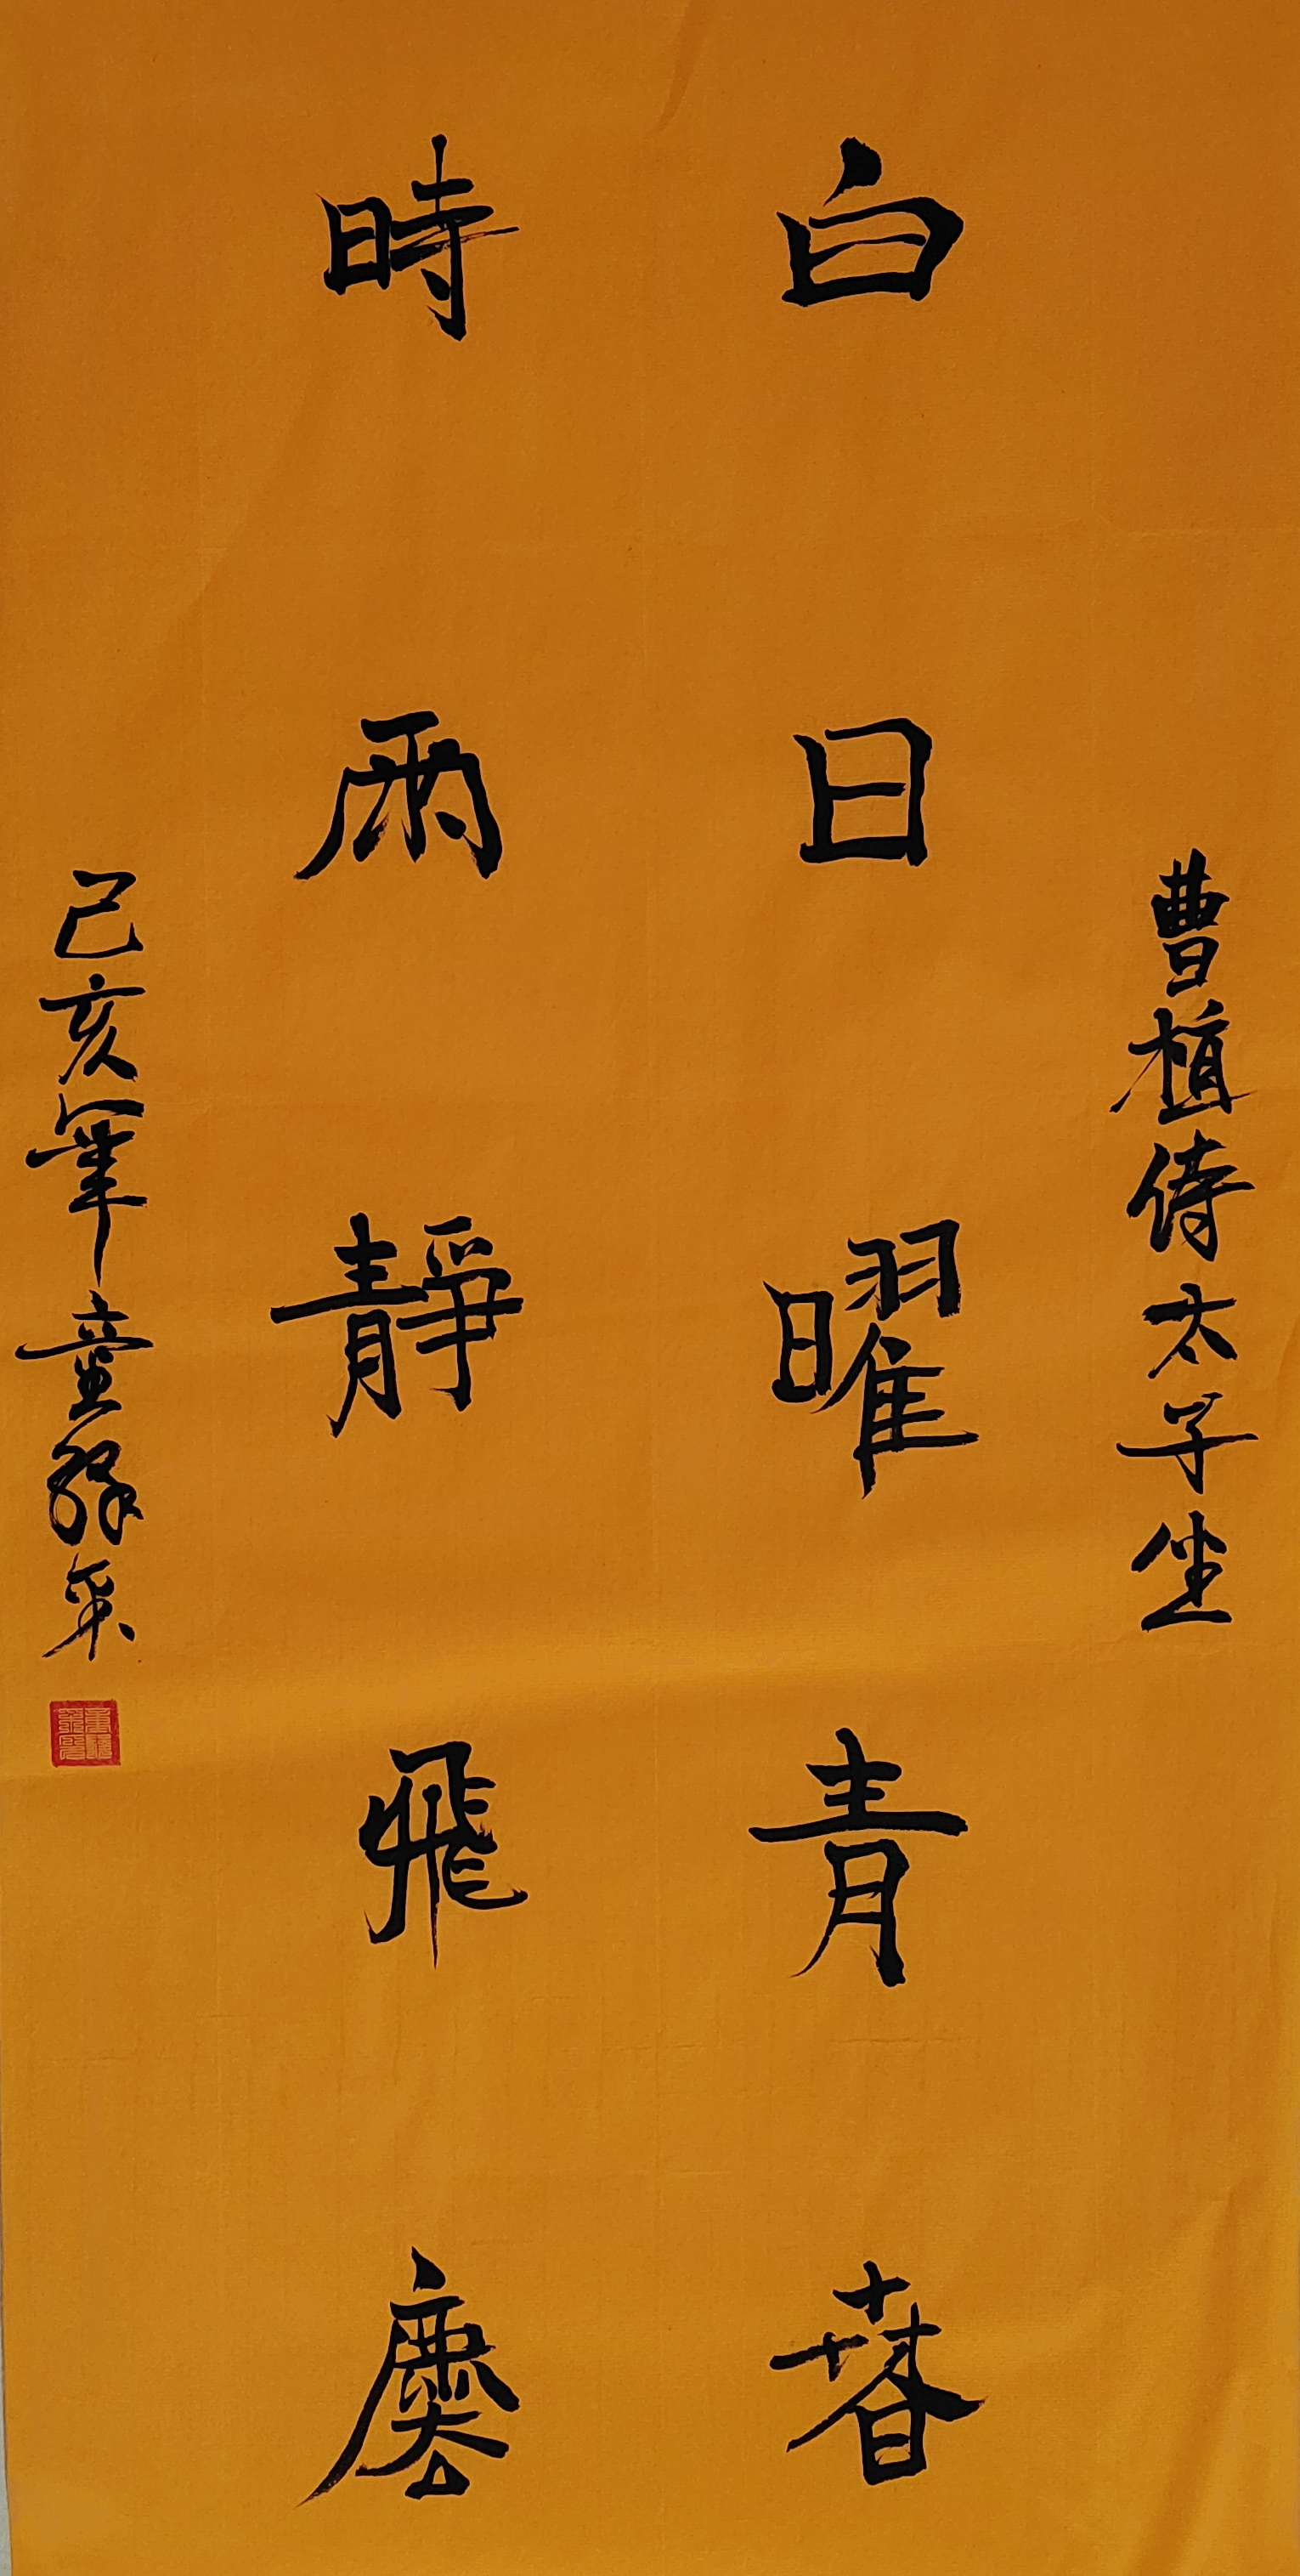 曹植侍太子坐
白日曜青春
時雨靜飛塵
己亥年童